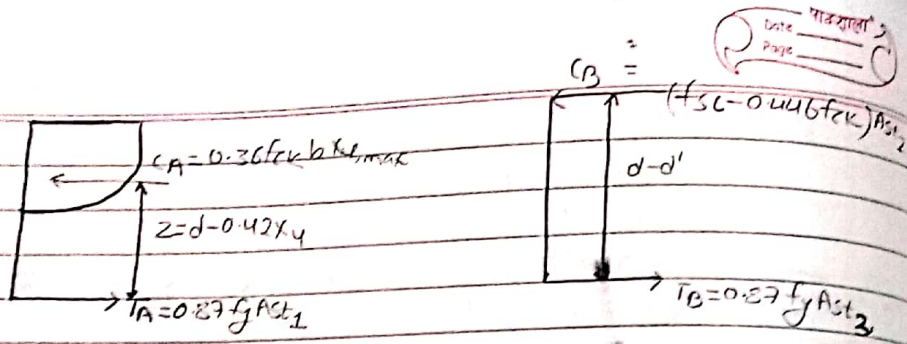 पाठशाला
Date
Page
C_B =
(fsc-0.446fck)Ast2
C_A=0.36fck b xu,max
d-d'
Z=d-0.42xu
T_A=0.87fyAst1
T_B=0.87fyAst2